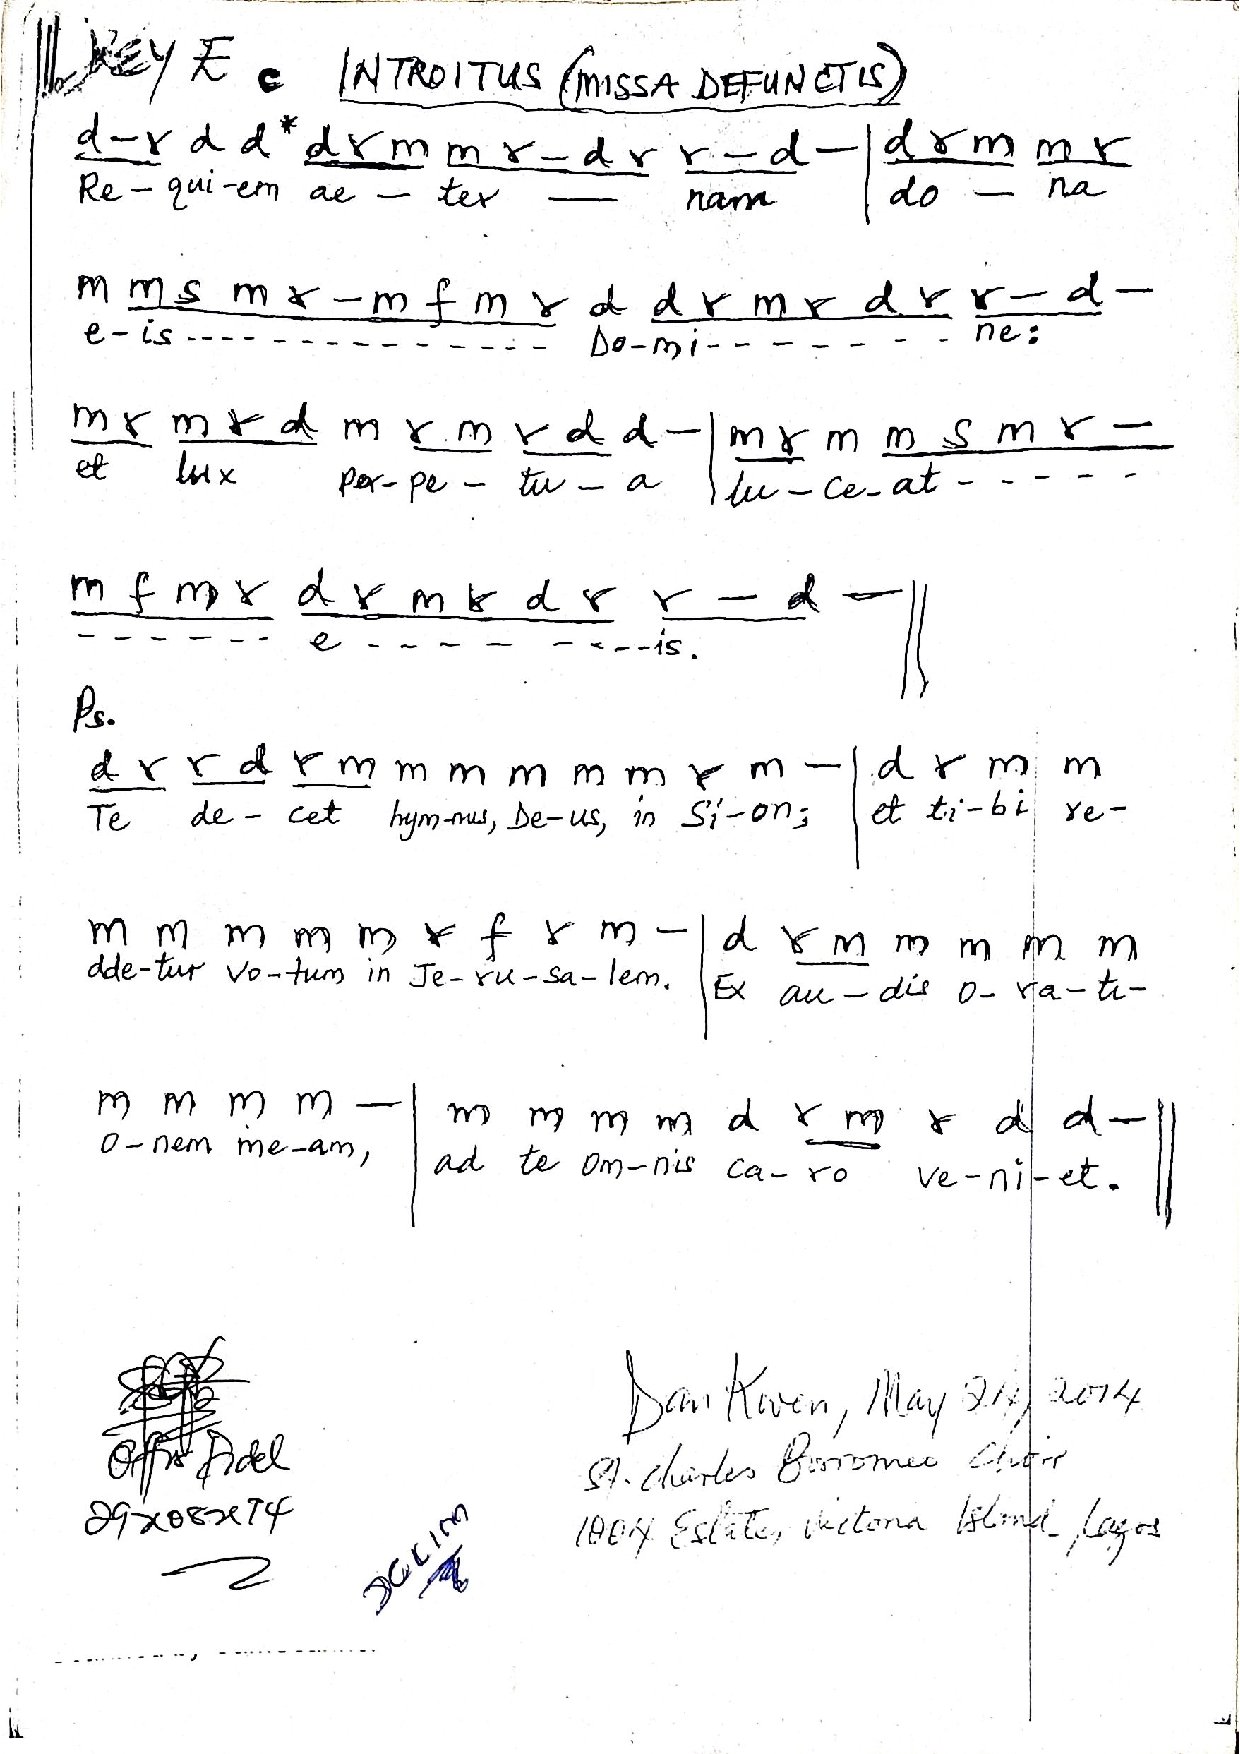 KEY E INTROITUS (MISSA DEFUNCTIS)
d – r d d * d r m m r – d r r – d – | d r m m r
Re – qui-em ae – ter — nam | do – na
m m s m r – m f m r d d r m r d r r – d –
e-is - - - - - - - - - - - - - - - - Do-mi - - - - - - - ne:
m r m r d m r m r d d – | m r m m s m r –
et lux per-pe – tu – a | lu – ce-at - - - - - -
m f m r d r m r d r r – d – ||
- - - - - - e - - - - - - - - is.
Ps.
d r r d r m m m m m m r m – | d r m m
Te de – cet hym-nus, De-us, in Si-on; | et ti-bi re-
m m m m m r f r m – | d r m m m m m
dde-tur vo-tum in Je-ru-sa-lem. | Ex au – dis o- ra-ti-
m m m m – | m m m m d r m r d d – ||
o-nem me-am, | ad te om-nis ca- ro ve-ni-et. ||
Dan Kwen, May 24, 2014
Fidel
St. Charles Borromeo Choir
1004 Estate, Victoria Island, Lagos